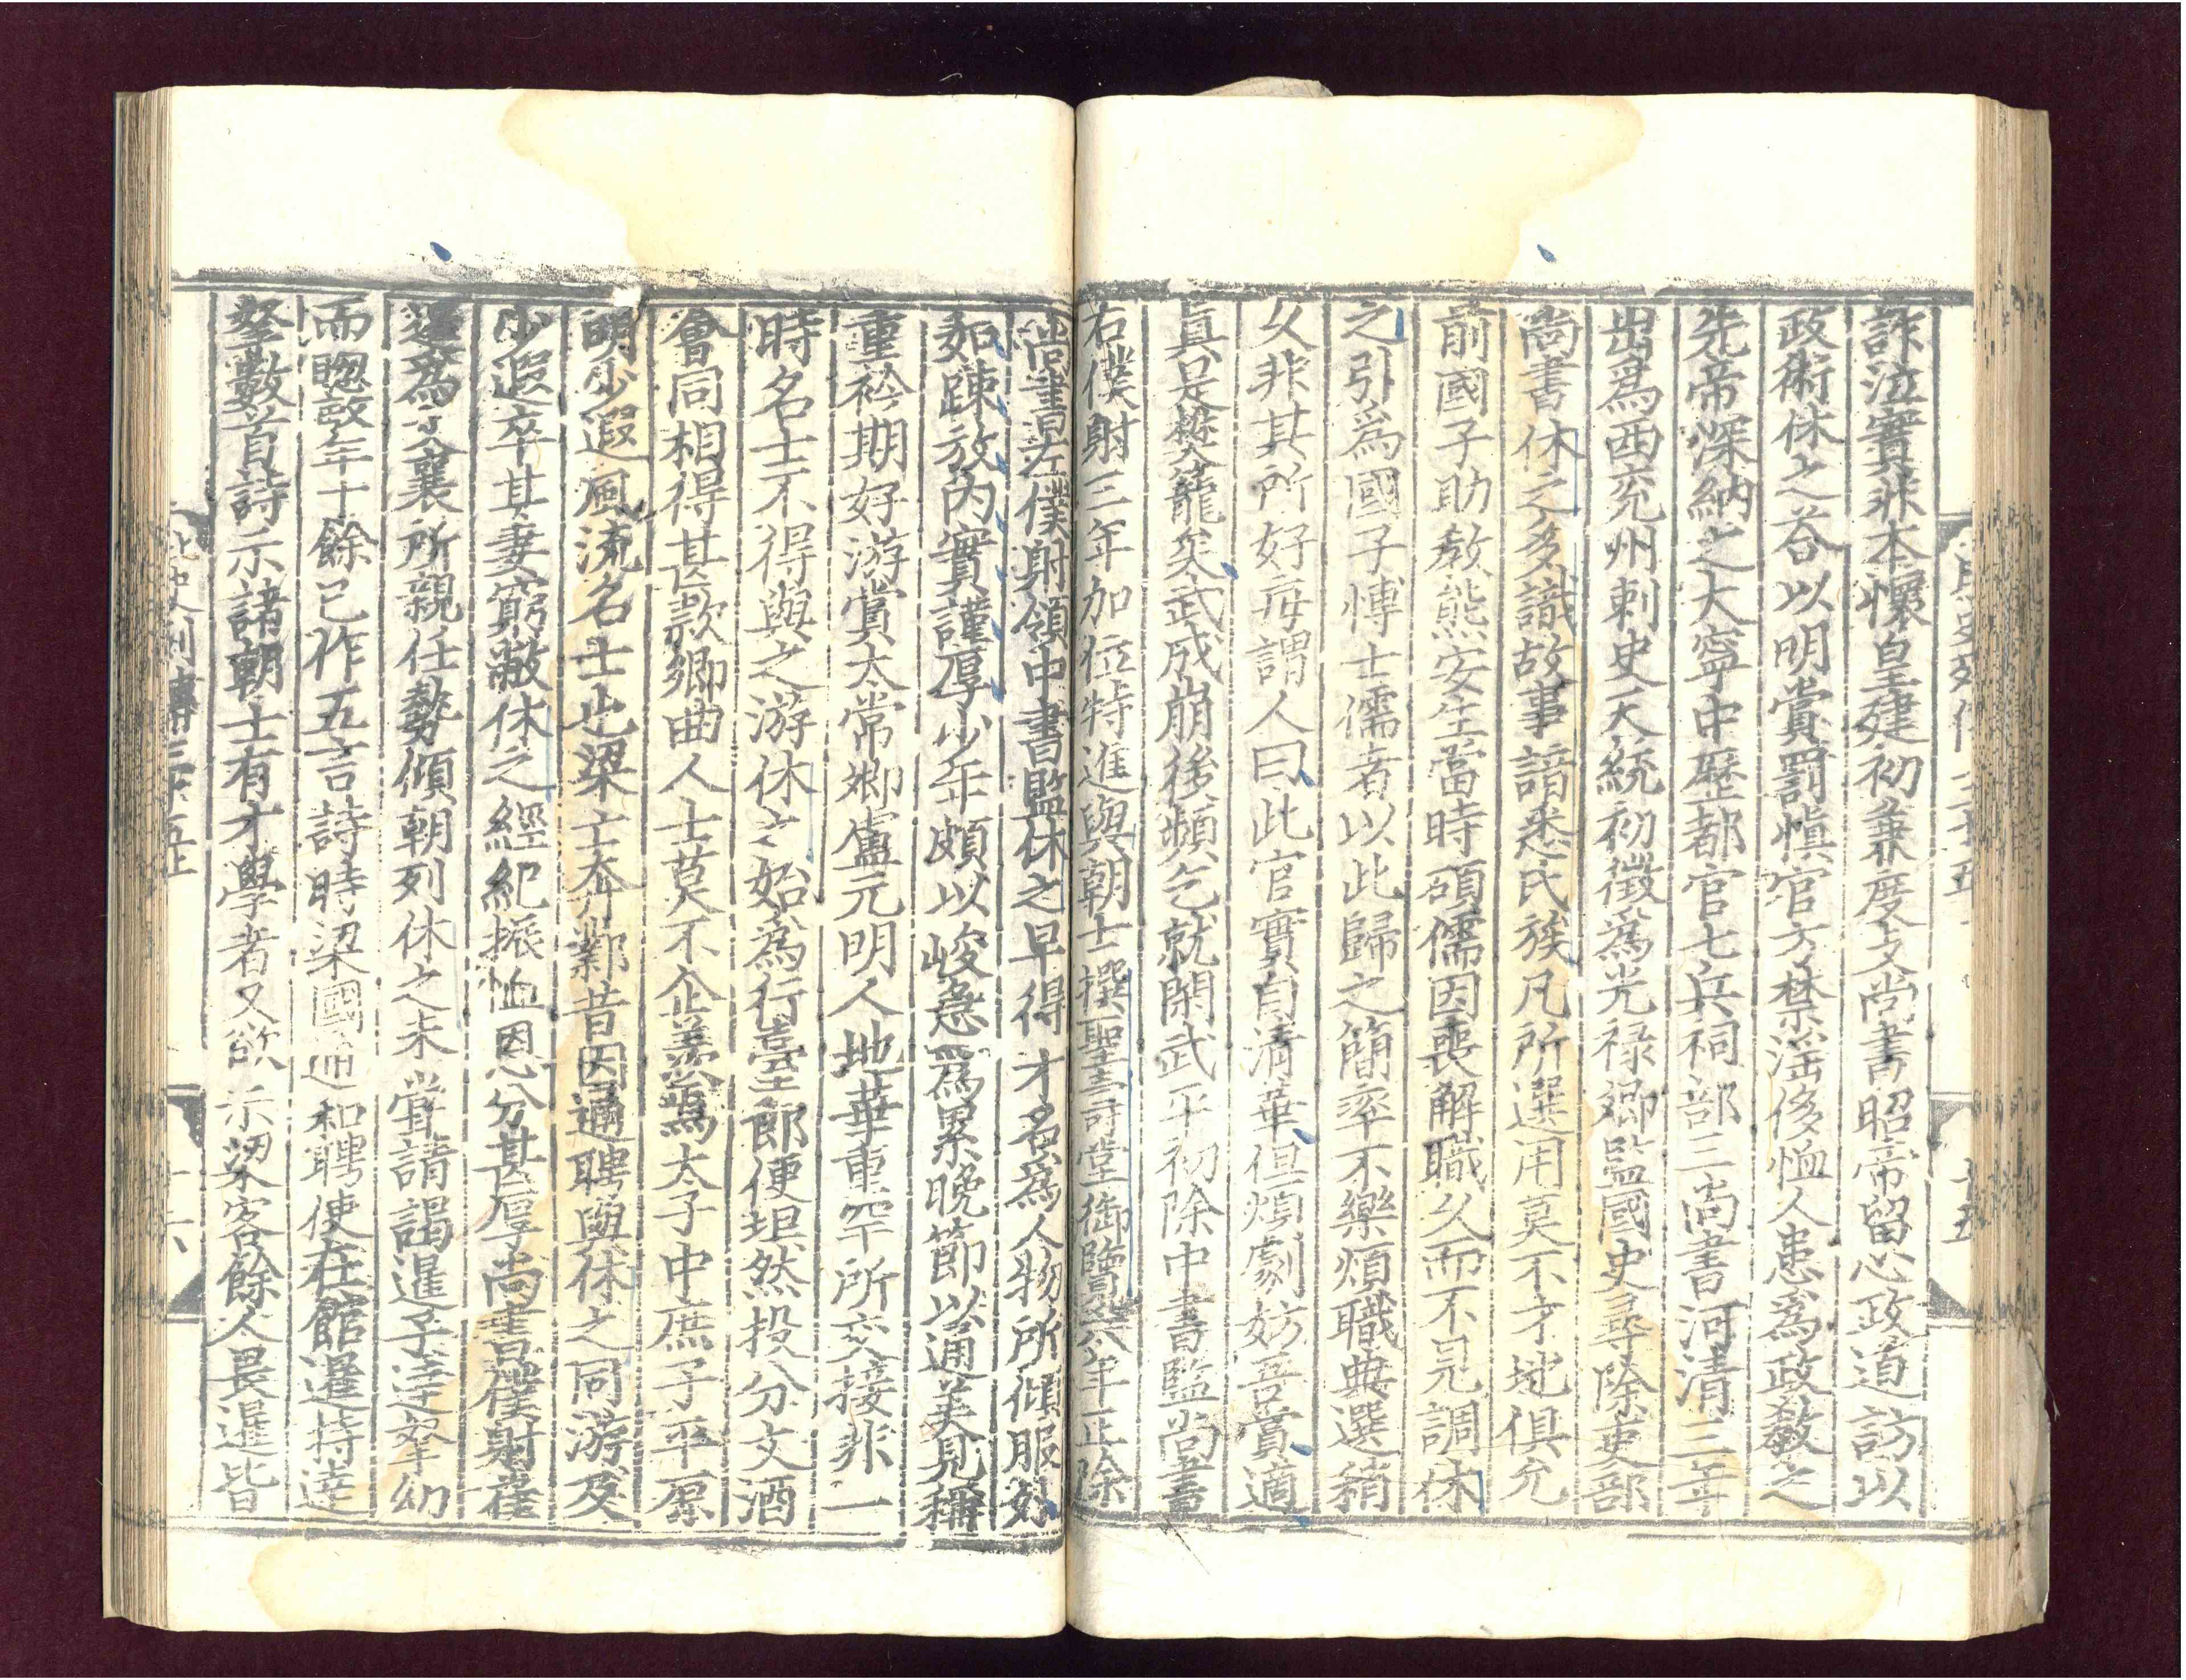 詐泣實非本懷皇建初兼度支尚書昭帝留心政道訪以
政術休之荅以明賞罰愼官方禁淫侈恤人患爲政敎之
先帝深納之大寧中歷都官七兵祠部三尚書河清三年
出爲西兖州刺史天統初徵爲光祿卿監國史尋除吏部
尚書休之多識故事諳悉氏族凡所選用莫不才地俱允
前國子助敎熊安生當時碩儒因喪解職久而不見調休
之引爲國子博士儒者以此歸之簡率不樂煩職典選稍
久非其所好每謂人曰此官實自清華但煩劇妨吾賞適
眞是樊籠矣武成崩後頻乞就閑武平初除中書監尚書
右僕射三年加位特進與朝士撰聖壽堂御覽六年正除
尚書左僕射領中書監休之早得才名爲人物所傾服外
如疎放内實謹厚少年頗以峻急爲累晚節以通美見稱
重衿期好游賞太常卿盧元明人地華重罕所交接非一
時名士不得與之游休之始爲行臺郎便坦然投分文酒
會同相得甚欵鄉曲人士莫不企羨焉太子中庶子平原
明少遐風流名士也梁亡奔鄴昔因通聘與休之同游及
少遐卒其妻窮敝休之經紀振恤恩分甚厚尚書僕射崔
暹爲文襄所親任勢傾朝列休之未嘗請謁暹子達拏幼
而聰敏年十餘已作五言詩時梁國通和聘使在館暹持達
拏數首詩示諸朝士有才學者又欲示梁客餘人畏暹皆
北史列傳三十五
十六